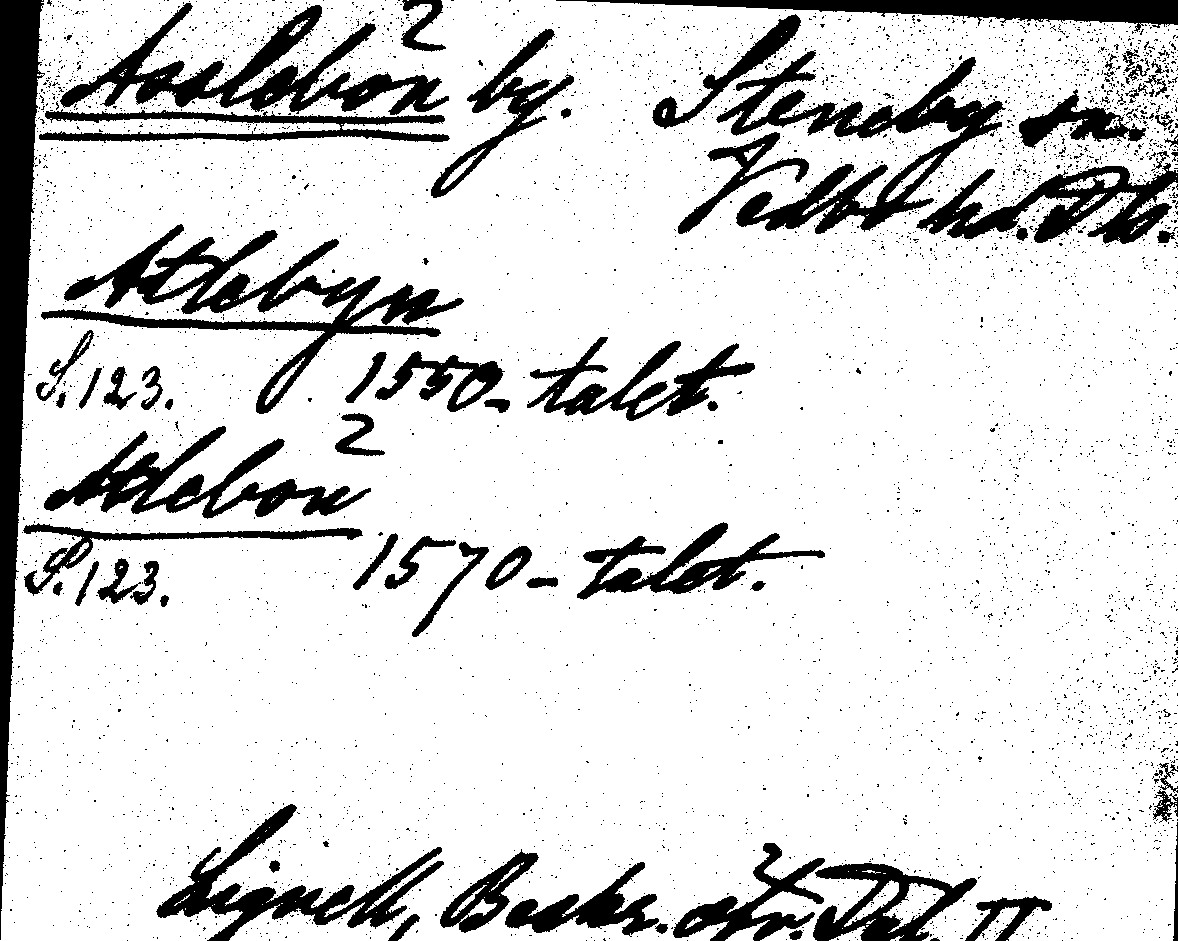 Asslebon 2 by. Steneby sn.
Vedbo hd. Dls.
Atlebyn
S. 123. 1550-talet.
2
Atlebon
S. 123. 1570-talet.
Lignell, Beskr. öfv. Dal. II